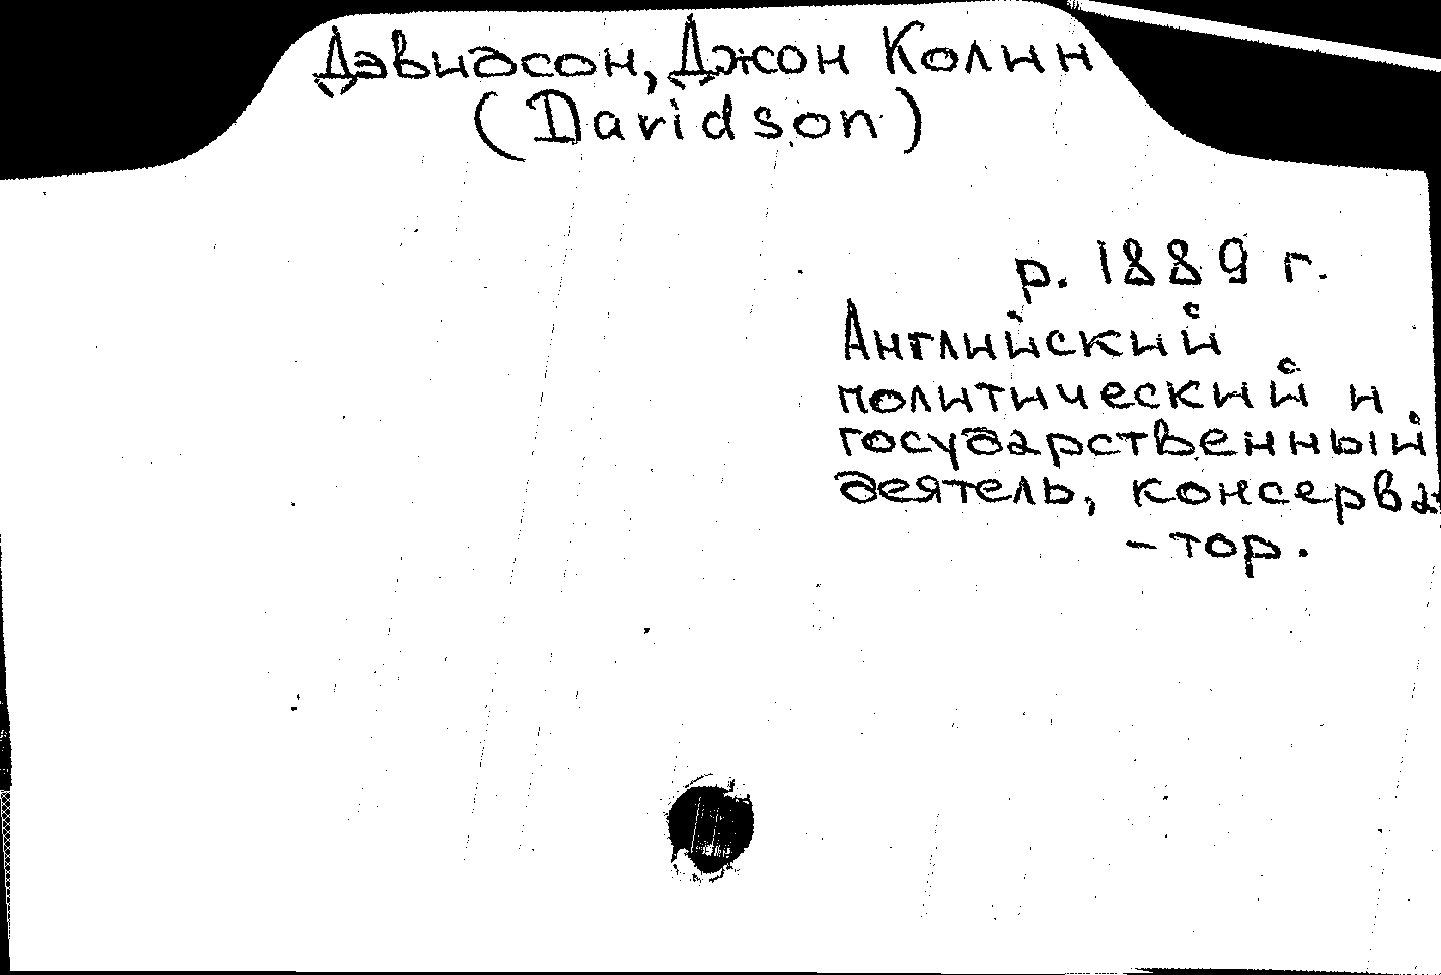 Дэвидсон, Джон Колин
(Davidson)
р. 1889 г.
Английский
политический и
государственный
деятель, консерва
-тор.